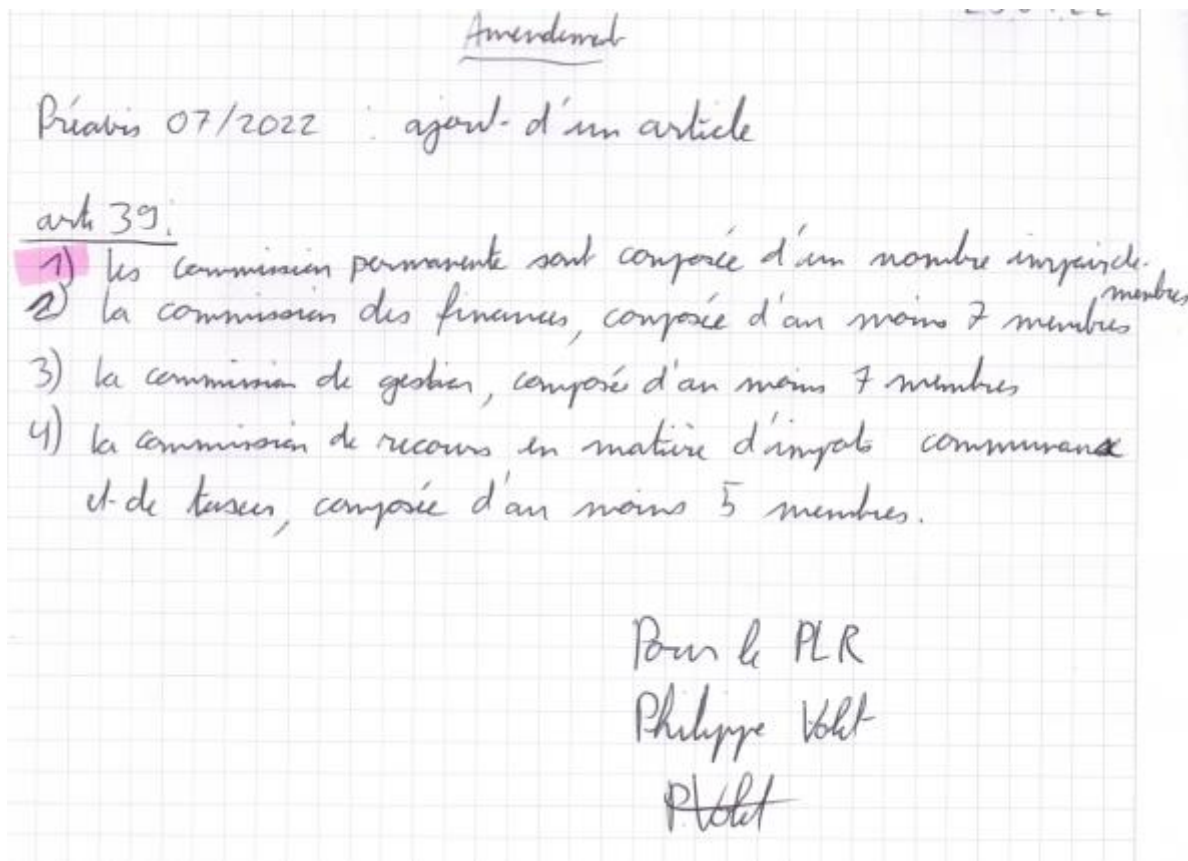 Amendement
Préavis 07/2022 : ajout d'un article
art 39:
1) les commission permanente sont composée d'un nombre impair de membres
2) la commission des finances, composée d'au moins 7 membres
3) la commission de gestion, composée d'au moins 7 membres
4) la commission de recours en matière d'impots communaux
et de taxes, composée d'au moins 5 membres.
Pour le PLR
Philippe Volet
P.Volet